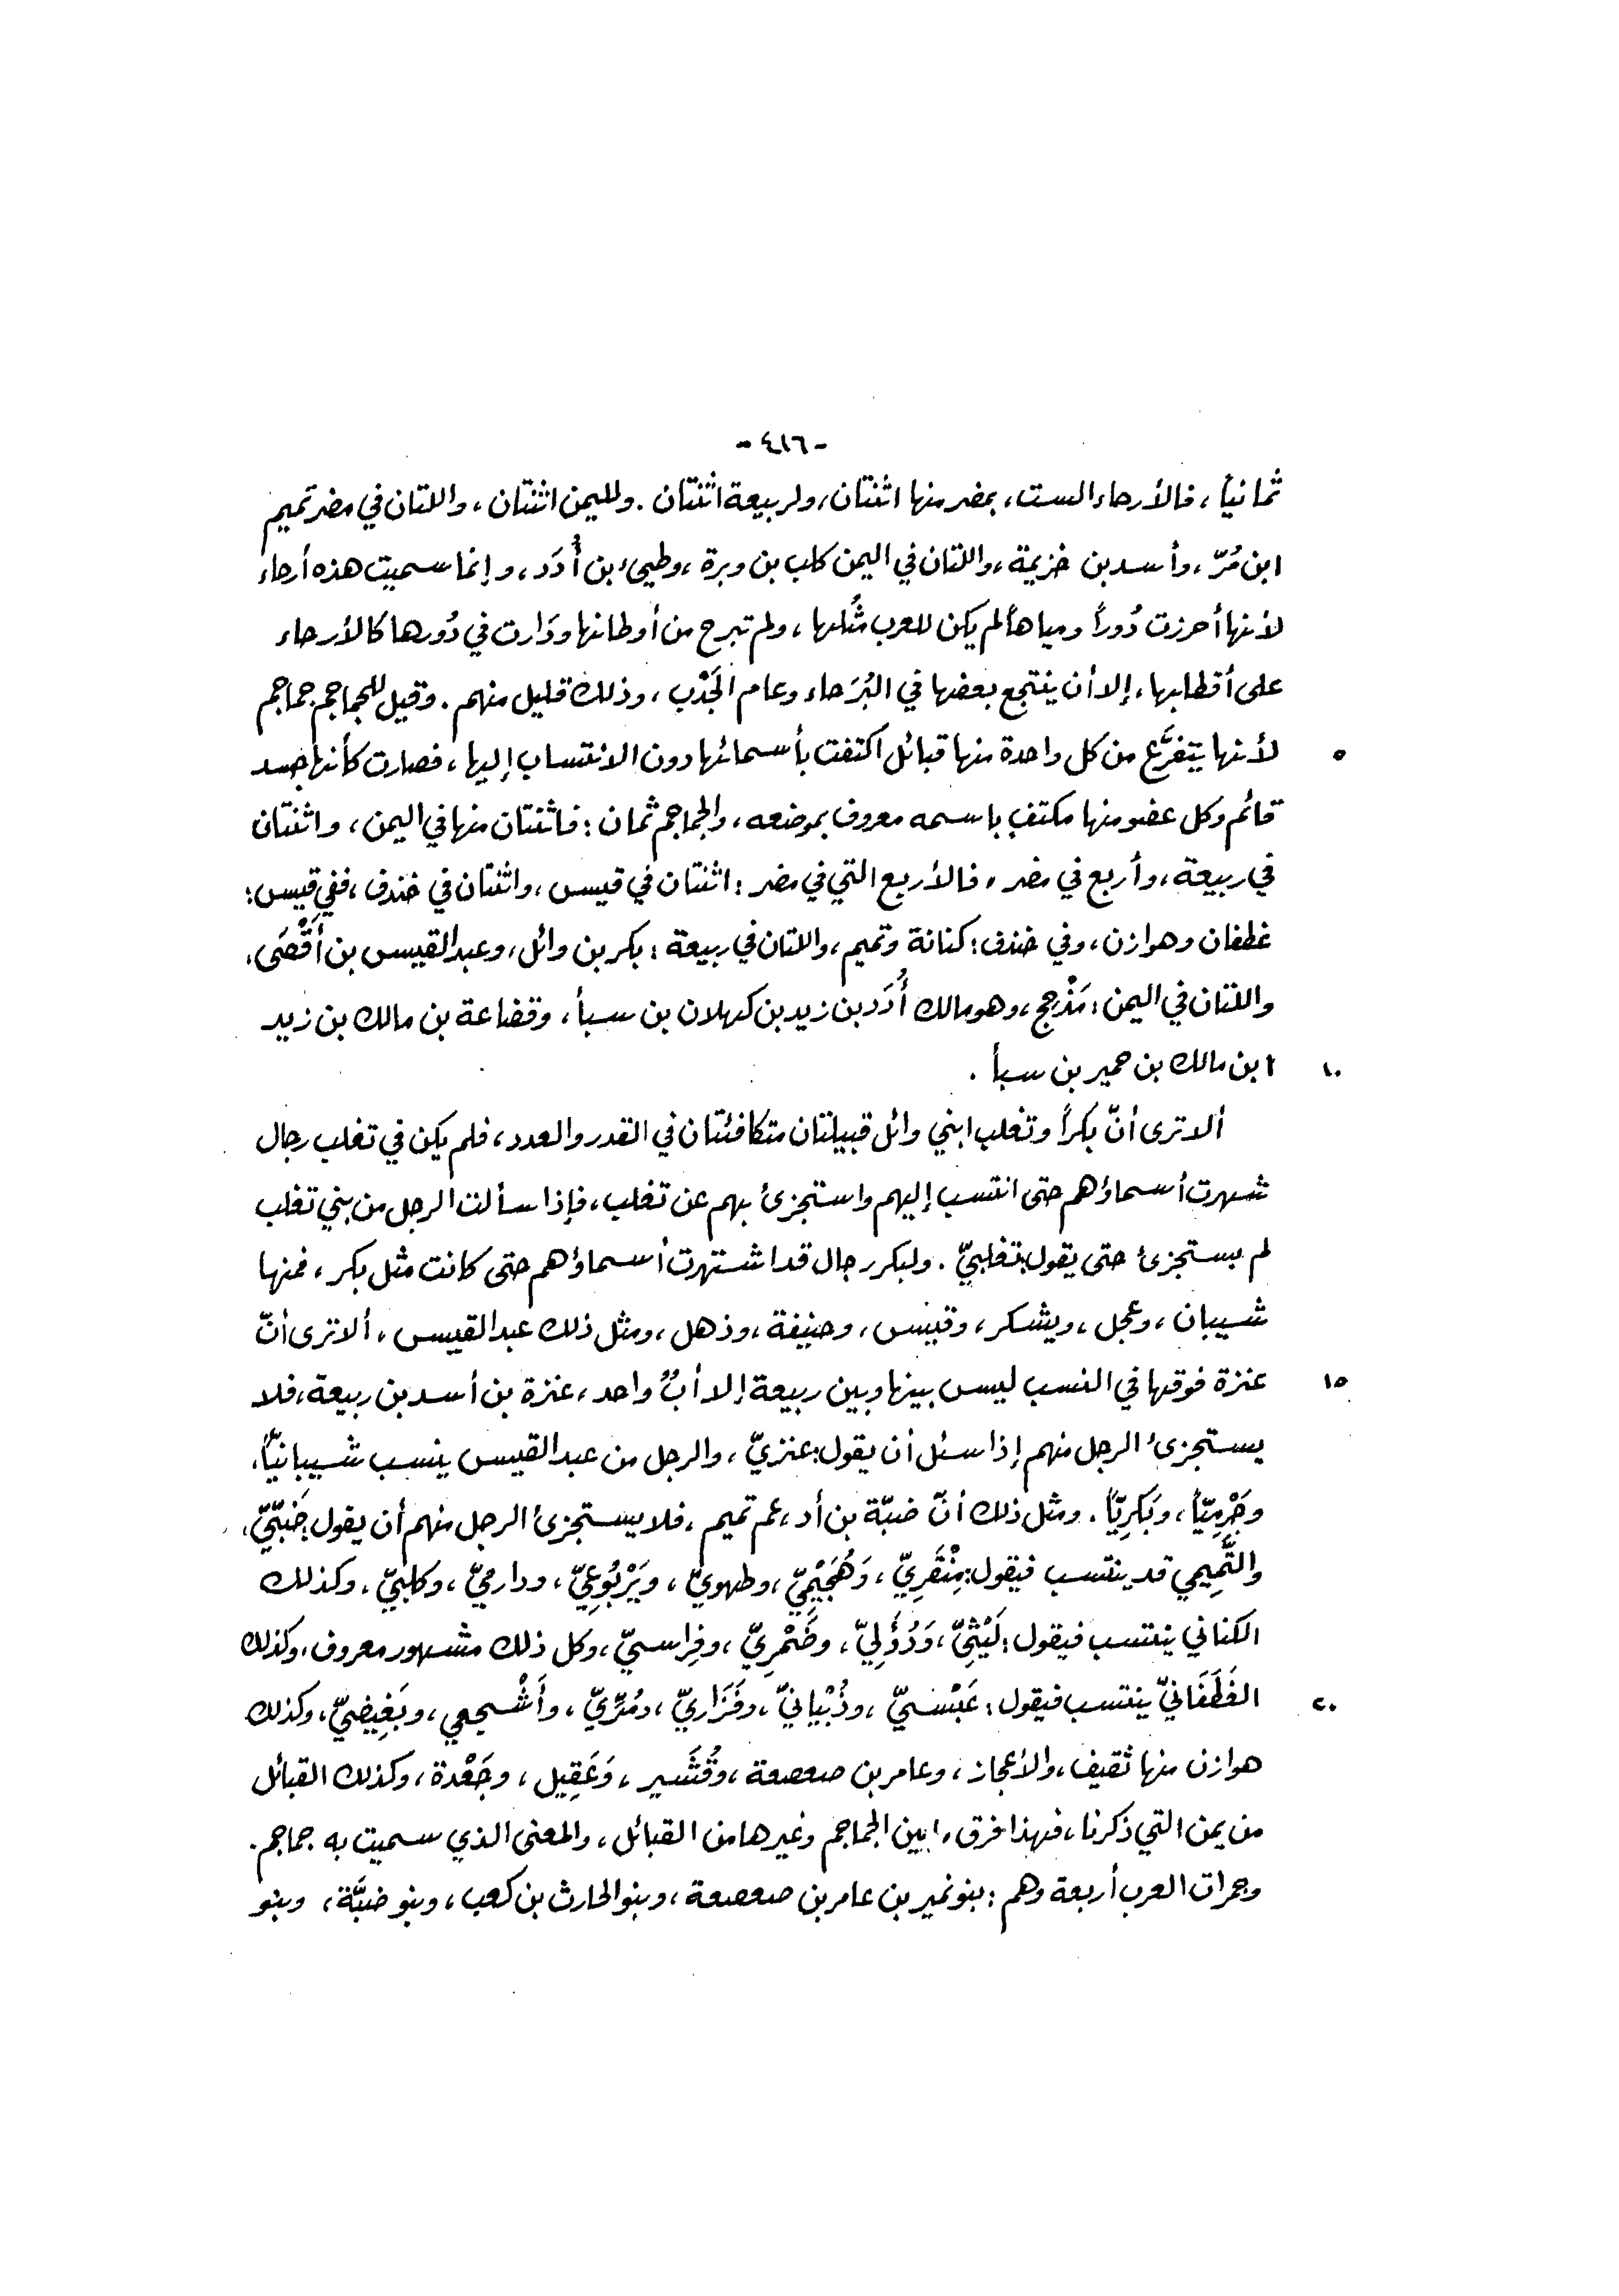 -٤١٦-
ثمانياً، فالأرحاء الست، بمضر منها اثنتان، ولربيعة اثنتان. ولليمن اثنتان، واللتان في مضر تميم
ابن مُرّ، وأسد بن خزيمة، واللتان في اليمن كلب بن وبرة، وطيىء بن أُدَد، وإنما سميت هذه أرحاء
لأنها أحرزت دُوراً ومياهاً لم يكن للعرب مثُلها، ولم تبرح من أوطانها ودَارت في دُورها كالأرحاء
على أقطابها، إلا أن ينتجع بعضها في البُرَحاء وعام الجَدْب، وذلك قليل منهم. وقيل للجماجم جماجم
٥ لأنها يتفرَّع من كل واحدة منها قبائل اكتفت بأسمائها دون الانتساب إليها، فصارت كأنها جسد
قائم وكل عضو منها مكتفٍ باسمه معروف بموضعه، والجماجم ثمان: فاثنتان منها في اليمن، واثنتان
في ربيعة، وأربع في مضر، فالأربع التي في مضر: اثنتان في قيس، واثنتان في خندف، ففي قيس:
غطفان وهوازن، وفي خندف: كنانة وتميم، واللتان في ربيعة: بكر بن وائل، وعبد القيس بن أَفْصَى،
واللتان في اليمن: مَذْحِج، وهو مالك أُدَد بن زيد بن كهلان بن سبأ، وقضاعة بن مالك بن زيد
١٠ ابن مالك بن حمير بن سبأ.
ألا ترى أنّ بكراً وتغلب ابني وائل قبيلتان متكافئتان في القدر والعدد، فلم يكن في تغلب رجال
شهرت أسماؤهم حتى انتسب إليهم واستجزئ بهم عن تغلب، فإذا سألت الرجل من بني تغلب
لم يستجزئ حتى يقول: تغلبيّ. ولبكر رجال قد اشتهرت أسماؤهم حتى كانت مثل بكر، فمنها
شيبان، وعجل، ويشكر، وقيس، وحنيفة، وذهل، ومثل ذلك عبد القيس، ألا ترى أنّ
١٥ عنزة فوقها في النسب ليس بينها وبين ربيعة إلا أبٌ واحد، عنزة بن أسد بن ربيعة، فلا
يستجزئ الرجل منهم إذا سئل أن يقول: عنزيّ، والرجل من عبد القيس ينسب شيبانيّاً،
وجَرْمِيّاً، وبَكريّاً. ومثل ذلك أنّ ضبّة بن أد، عم تميم، فلا يستجزئ الرجل منهم أن يقول: ضَبّيّ،
والتَّمِيمي قد ينتسب فيقول: مِنْقَرِيّ، وَهُجَيْمِيّ، وطهويّ، ويَرْبُوعِيّ، ودارميّ، وكلبيّ، وكذلك
الكناني ينتسب فيقول: لَيْثِيّ، وَدُؤَلِيّ، وضَمْرِيّ، وفِراسيّ، وكل ذلك مشهور معروف، وكذلك
٢٠ الغَطَفَانيّ ينتسب فيقول: عَبْسيّ، وذُبْيانيّ، وفَزَاريّ، ومُرِّيّ، وأَشْجعي، وبَغِيضيّ، وكذلك
هوازن منها ثقيف، والأعجاز، وعامر بن صعصعة، وقُشَير، وَعَقِيل، وجَعْدة، وكذلك القبائل
من يمن التي ذكرنا، فهذا فرق ما بين الجماجم وغيرها من القبائل، والمعنى الذي سميت به جماجم.
وجمرات العرب أربعة وهم: بنو نمير بن عامر بن صعصعة، وبنو الحارث بن كعب، وبنو ضبَّة، وبنو